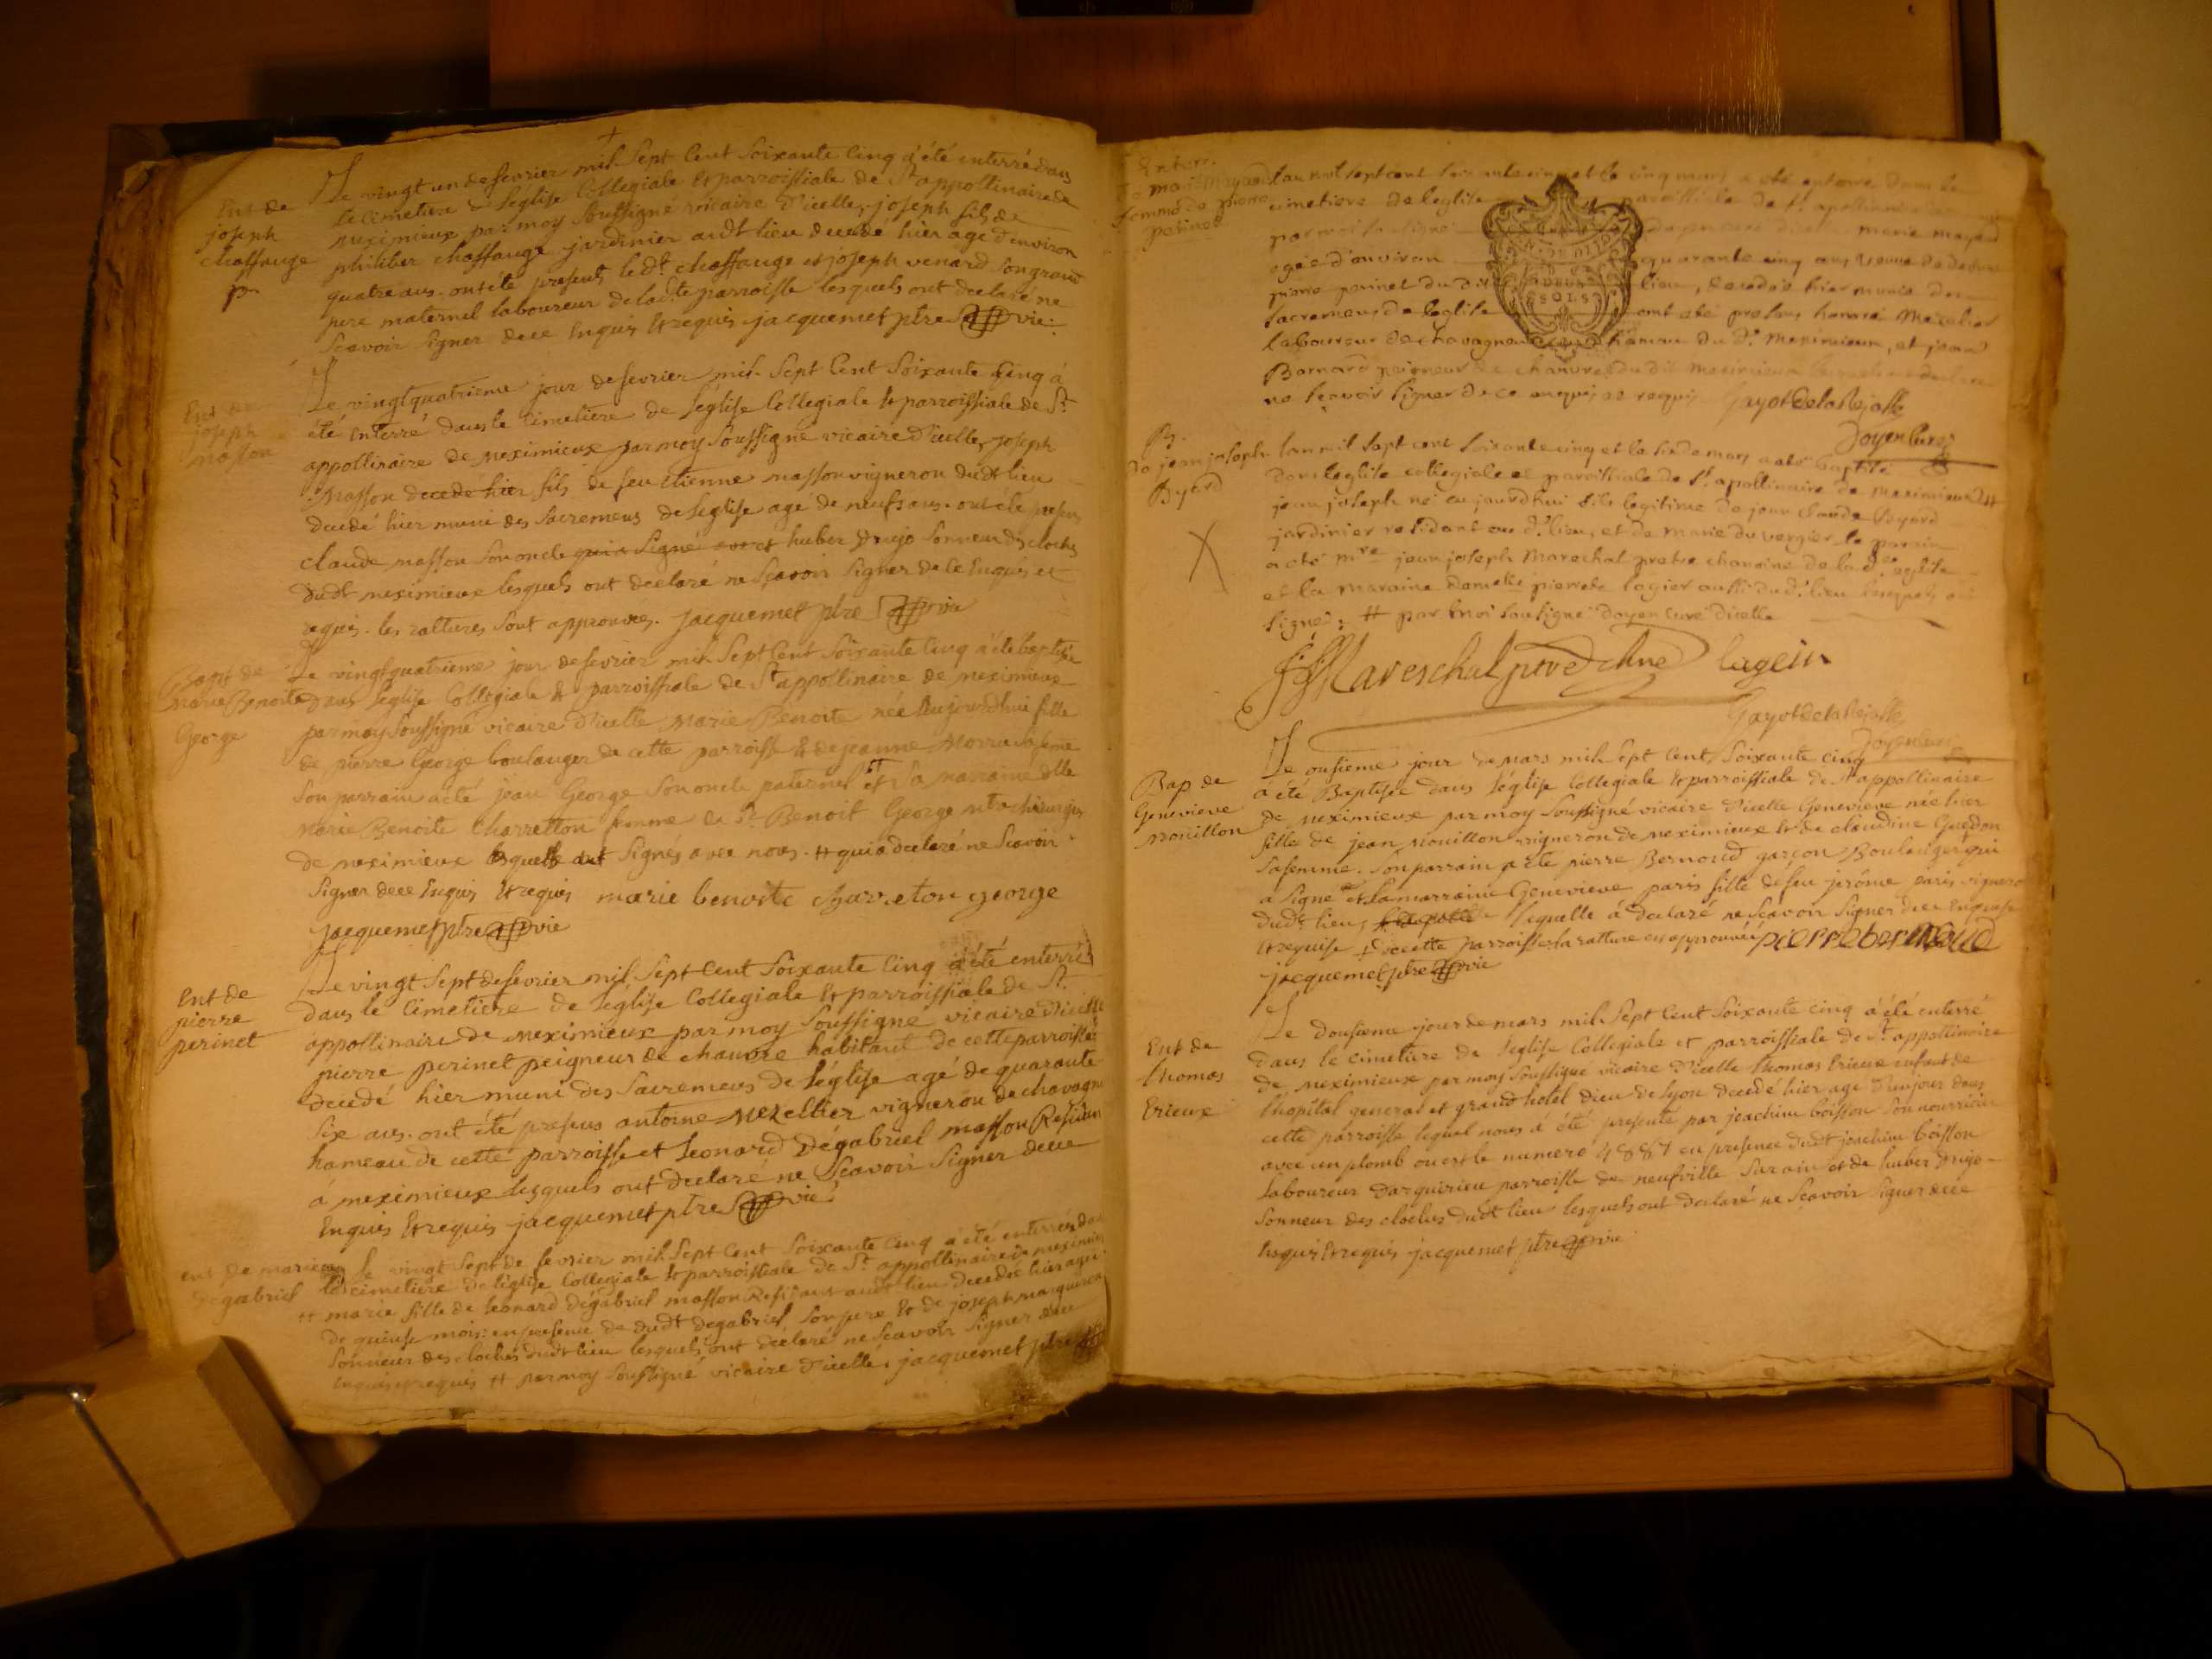 +
Ent de
joseph
chaffange
p.
Le vingt un de fevrier mil Sept Cent Soixante Cinq a été enterré dans
le cimetiere de l'église Collegiale et parroissiale de St appollinaire de
meximieux par moy Soussigné vicaire d'icelle, joseph fils de
philiber chaffange jardinier audt lieu decedé hier agé d'environ
quatre ans. ont été presens ledt chaffange et joseph venard Son grand
pere maternel laboureur de ladte parroisse lesquels ont declaré ne
Scavoir Signer de ce Enquis et requis jacquemet ptre vic
Ent de
joseph
masson
Le vingtquatrieme jour de fevrier mil Sept Cent Soixante Cinq à
été enterré dans le Cimetiere de l'église Collegiale et parroissiale de St
appollinaire de meximieux par moy Soussigné vicaire d'icelle, joseph
Masson decede hier fils de feu etienne masson vigneron dudt lieu
decedé hier muni des Sacremens de l'eglise agé de neuf ans. ont été presens
claude masson Son oncle qui a Signé et huber Drujo Sonneur des cloches
dudt meximieux lesquels ont declaré ne Scavoir Signer de ce Enquis et
requis. les rattures Sont approuvées. jacquemet ptre vic
Bapt de
marie Benoite
George
Le vingtquatrieme jour de fevrier mil Sept Cent Soixante Cinq à été baptisée
dans l'eglise Collegiale et parroissiale de St appollinaire de meximieux
par moy Soussigné vicaire d'icelle Marie Benoite née aujourdhui fille
de pierre George boulanger de cette parroisse et de jeanne sa femme
Son parrain à été jean George Son oncle paternel tt et Sa marraine dlle
Marie Benoite Charretton femme de Sr. Benoit George
de meximieux Signés avec nous. tt qui a declaré ne Scavoir
Signer de ce Enquis et requis marie benoite Charreton george
jacquemet ptre vic
Ent de
pierre
perinet
Le vingt Sept de fevrier mil Sept Cent Soixante Cinq à été enterré
dans le Cimetiere de l'église Collegiale et parroissiale de St.
appollinaire de meximieux par moy Soussigné vicaire d'icelle
pierre perinet peigneur de chanvre habitant de cette parroisse
decedé hier muni des Sacremens de l'église agé de quarante
Six ans. ont été presens antoine Mezellier vigneron de chavagne
hameau de cette parroisse et Leonard Dégabriel masson Residant
à meximieux lesquels ont declaré ne Scavoir Signer de ce
Enquis et requis jacquemet ptre vic
ent de marie
degabriel
Le vingt Sept de fevrier mil Sept Cent Soixante Cinq a été enterrée dans
le cimetiere de l'eglise Collegiale et parroissiale de St appollinaire de meximieux
tt marie fille de Leonard Dégabriel masson Residant audt lieu decedée hier agée
de quinse mois. en presence de dudt degabriel Son pere et de joseph
Sonneur des cloches dudt lieu lesquels ont declaré ne Scavoir Signer de ce
enquis et requis tt par moy Soussigné vicaire d'icelle. jacquemet ptre
Enterr.
de marie mayand
femme de pierre
perinet
l'an mil sept cent soixante cinq et le cinq mars a été enterrée dans le
cimetiere de l'eglise parroissiale de St. apollinaire
par moi soussigné marie mayand
agée d'environ quarante cinq ans veuve de
pierre perinet du dit lieu, decedée hier munie des
sacremens de l'eglise ont eté presens
laboureur de chavagneu hameau du dt. Meximieux, et jean
Bernard peigneur de chanvre du dit Meximieux
ne scavoir signer de ce enquis et requis Gayot de la Rejasse
Doyen Curé
DEUX SOLS
B.
de jean joseph
Byard
X
l'an mil sept cent soixante cinq et le six de mars a eté baptisé
dans l'eglise collegiale et paroissiale de St. apollinaire de Meximieux tt
jean joseph né aujourdhui fils legitime de jean claude Byard
jardinier residant au dt. lieu, et de Marie duvergier le parain
a eté mre jean joseph Marechal pretre chanoine de la de. eglise
et la maraine damelle pierrete lagier aussi du dt. lieu lesquels ont
signé; tt par moi soussigné doyen curé d'icelle
JJ Mareschal ptre chne lagein
Gayot de la Rejasse
Doyen Curé
Bap de
Genevieve
Mouillon
Le onsieme jour de mars mil Sept Cent Soixante Cinq
à été Baptisée dans l'église Collegiale et parroissiale de St appollinaire
de meximieux par moy Soussigné vicaire d'icelle Genevieve née hier
fille de jean Mouillon vigneron de meximieux et de claudine Guedon
Sa femme. Son parrain a été pierre Bernoud garçon Boulanger qui
a Signé et la marraine Genevieve paris fille de feu jerôme paris vigneron
dudt lieu, laquelle à declaré ne Scavoir Signer de ce enquise
et requise + de cette parroisse la ratture est approuvée pierre bernoud
jacquemet ptre vic
Ent de
thomas
Erieux
Le dousieme jour de mars mil Sept Cent Soixante Cinq à été enterré
dans le cimetiere de l'eglise Collegiale et parroissiale de St appollinaire
de meximieux par moy Soussigné vicaire d'icelle thomas Erieux enfant de
l'hopital general et grand hotel dieu de Lyon decedé hier agé dans
cette parroisse lequel nous à été presenté par joachim boisson Son nourricier
avec un plomb ou est le numero 4887 en presence dudt joachim boisson
laboureur parroisse de neufville Sur ain et de huber Drujo
Sonneur des cloches dudt lieu lesquels ont declaré ne Scavoir Signer de ce
Enquis et requis jacquemet ptre vic